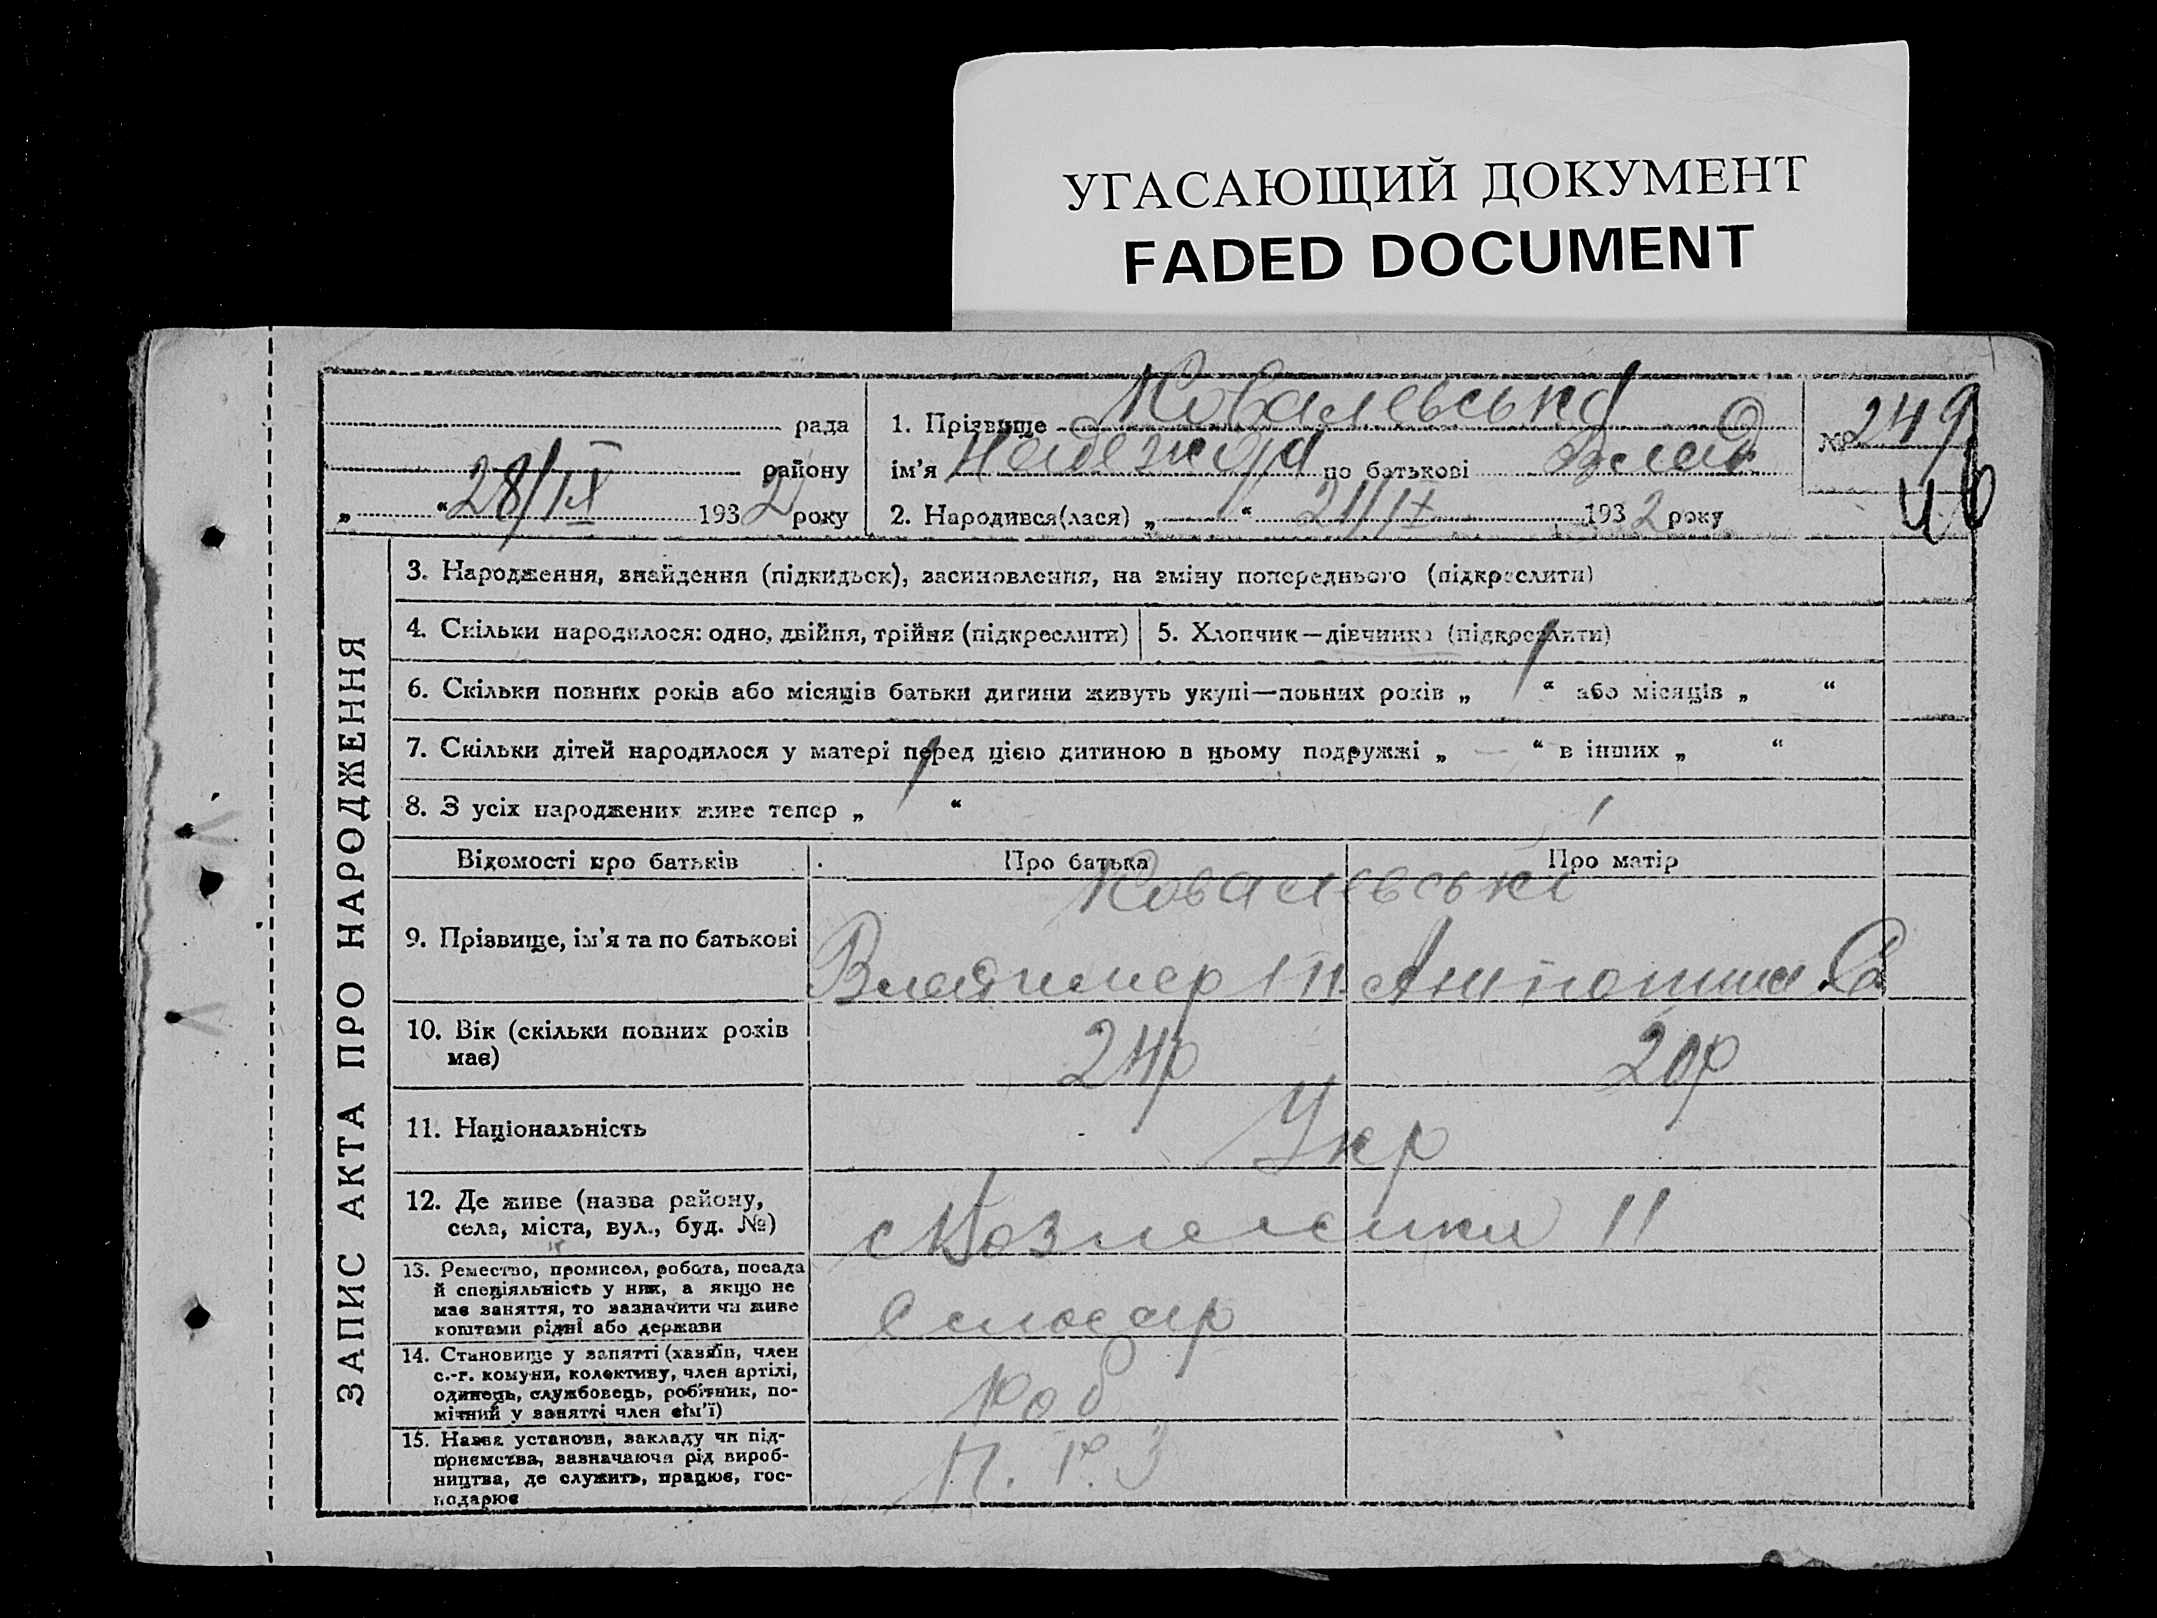 УГАСАЮЩИЙ ДОКУМЕНТ
FADED DOCUMENT
рада
району
„ “ 28/IX 1932 року
1. Прізвище Ковалевська
ім’я Надежда по батькові Влад
2. Народився(лася) „ “ 21/IX 1932 року
№ 249
ЗАПИС АКТА ПРО НАРОДЖЕННЯ
3. Народження, знайдення (підкидьок), засиновлення, на зміну попереднього (підкреслити)
4. Скільки народилося: одно, двійня, трійня (підкреслити)
5. Хлопчик—дівчинка (підкреслити)
6. Скільки повних років або місяців батьки дитини живуть укупі—повних років „ 1 “ або місяців „ “
7. Скільки дітей народилося у матері перед цією дитиною в цьому подружжі „ — “ в інших „ “
8. З усіх народжених живе тепер „ 1 “
Відомості про батьків
Про батька
Про матір
9. Прізвище, ім’я та по батькові
Ковалевські
Владимер
10. Вік (скільки повних років
має)
24р
20р
11. Національність
Укр
12. Де живе (назва району,
села, міста, вул., буд. №)
11
13. Ремество, промисел, робота, посада
й спеціяльність у них, а якщо не
має заняття, то зазначити чи живе
коштами рідні або держави
Слюсар
14. Становище у занятті (хазяїн, член
с.-г. комуни, колективу, член артілі,
одинець, службовець, робітник, по-
мічний у занятті член сім’ї)
Роб
15. Назва установи, закладу чи під-
приємства, зазначаючи рід вироб-
ництва, де служить, працює, гос-
подарює
П. Р. З